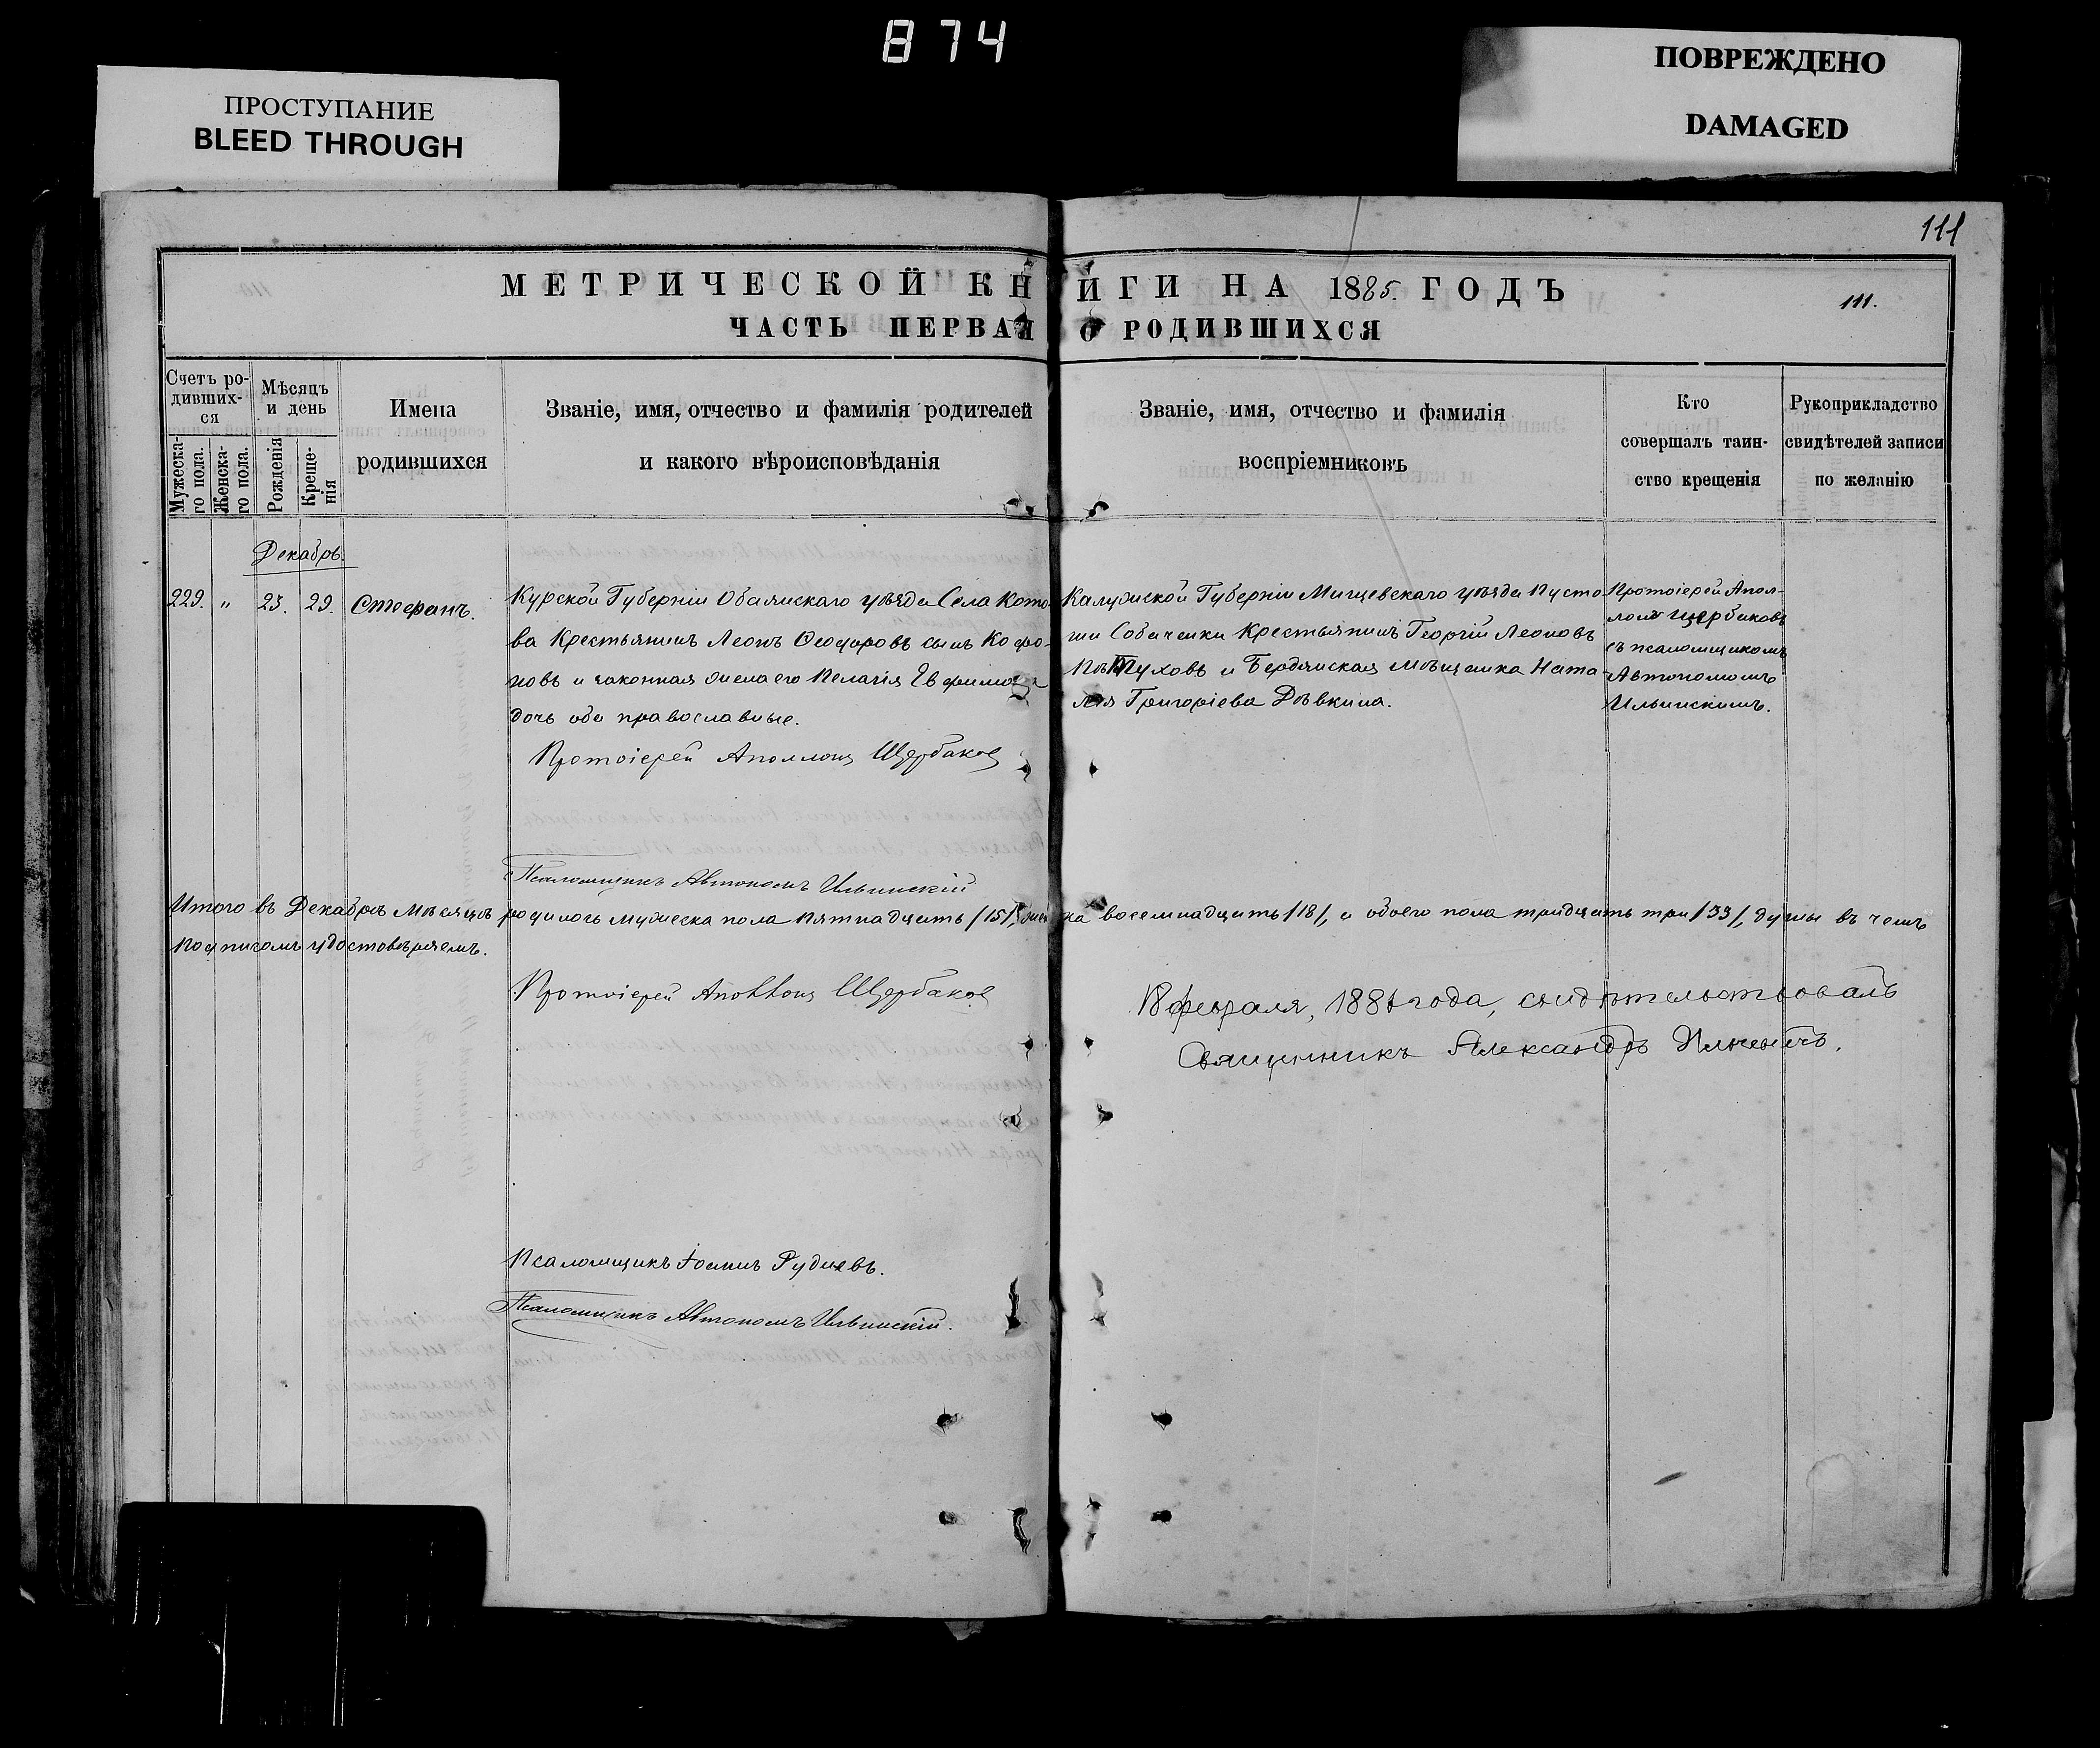 874
ПРОСТУПАНИЕ
BLEED THROUGH
ПОВРЕЖДЕНО
DAMAGED
111
МЕТРИЧЕСКОЙ КНИГИ НА 1885. ГОДЪ
111.
ЧАСТЬ ПЕРВАЯ О РОДИВШИХСЯ
Счетъ ро-
дивших-
ся
Мужеска-
го пола.
Женска-
го пола.
Мѣсяцъ
и день
Рожденія
Креще-
нія
Имена
родившихся
Званіе, имя, отчество и фамилія родителей
и какого вѣроисповѣданія
Званіе, имя, отчество и фамилія
воспріемниковъ
Кто
совершалъ таин-
ство крещенія
Рукоприкладство
свидѣтелей записи
по желанію
Декабрь.
229. " 25. 29. Стефанъ.
Курской Губерніи Обаянскаго уѣзда Села Кото-
ва Крестьянинъ Леонъ Ѳеодоровъ сынъ Кофо-
новъ и законная жена его Пелагія Евфимова
дочь оба православные.
Протоіерей Аполлонъ Щербаковъ
Псаломщикъ Автономъ Ильинскій
Калужской Губерніи Мищевскаго уѣзда Пусто-
ши Собаченки Крестьянинъ Георгій Леоновъ
Пѣтуховъ и Бердянская мѣщанка Ната-
лія Григоріева Дѣвкина.
Протоіерей Апол-
лонъ Щербаковъ
съ псаломщикомъ
Автономомъ
Ильинскимъ.
Итого въ Декабрѣ мѣсяцѣ родилось мужеска пола пятнадцать /15/, женска восемнадцать /18/, а обоего пола тридцать три /33/, души въ чемъ
подписомъ удостовѣряемъ.
Протоіерей Аполлонъ Щербаковъ
18 февраля, 1886 года, свидѣтельствовалъ
Священникъ Александръ
Псаломщикъ Іоаннъ Рудневъ.
Псаломщикъ Автономъ Ильинскій.